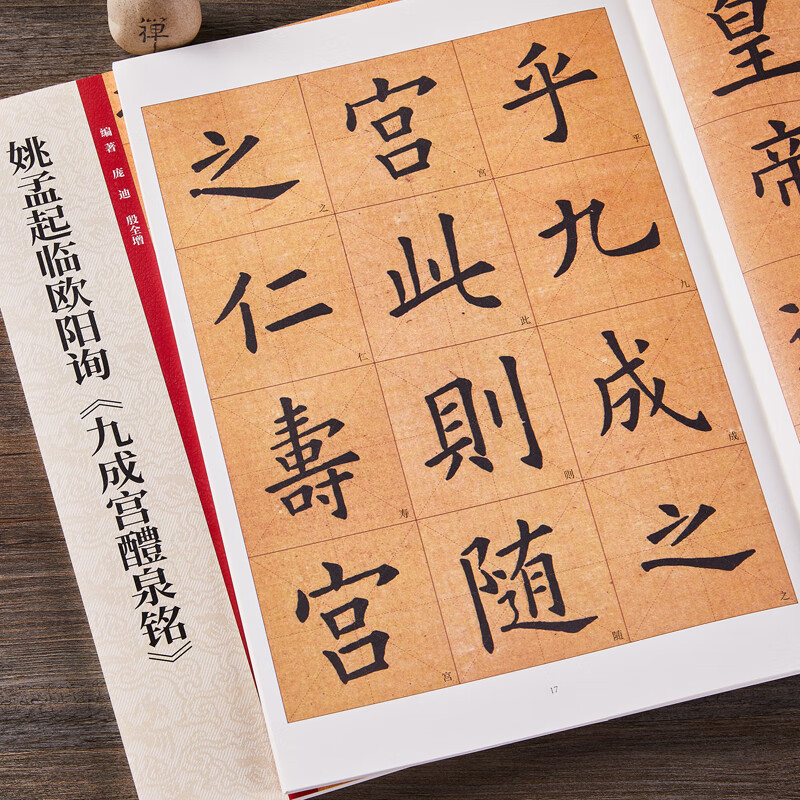 禪
姚孟起临欧阳询《九成宫醴泉铭》
编著 庞迪 殷全增
皇帝
乎九成之
宮此則随
之仁壽宮
九成之
宮此則随
之仁寿宮
17